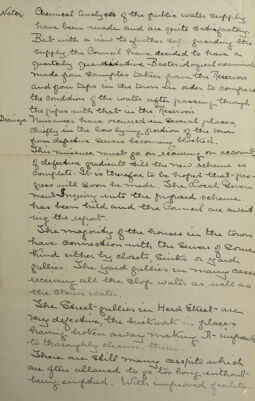 Water. Chemical Analysis of the public water supply
have been made and are quite satisfactory.
But with a view to further safe guarding the
supply the Council have decided to have a
quarterly quantitative Bacteriological examination
made from samples taken from the Reservoir
and from taps in the town in order to compare
the condition of the water after passing through
the pipes and that in the Reservoir.
Drainage. Nuisances have occurred in several places,
chiefly in the low lying portions of the town
from defective sewers becoming blocked.
This nuisance must go on recurring on account
of defective gradients till the new scheme is
complete. It is therefore to be hoped that pro-
gress will soon be made. The Local Govern
ment Inquiry into the proposed scheme
has been held and the Council are await
ing the report.
The majority of the houses in the town
have connection with the sewer of some
kind either by closets, sinks or yard
gullies. The yard gullies in many cases
receiving all the slop water as well as
the storm water.
The Street gullies in Herd Street are
very defective, the brickwork in places
having broken away making it
to thoroughly cleanse them.
There are still many cesspits which
are often allowed to go too long without
being emptied. With improved facilities